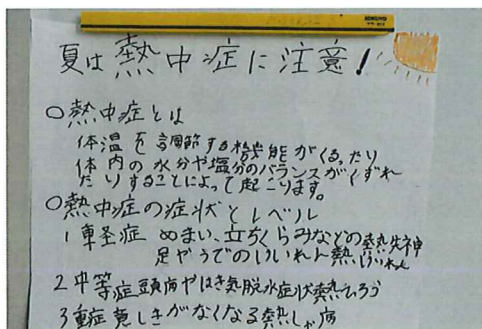 KOKUYO
夏は熱中症に注意!
○熱中症とは
体温を調節する機能がくるったり
体内の水分や塩分のバランスがくずれ
たりすることによって起こります。
○熱中症の症状とレベル
1軽症 めまい、立ちくらみなどの熱失神
足やうでのけいれん熱けいれん
2中等症頭痛やはき気脱水症状熱ひろう
3重症意しきがなくなる熱しゃ病